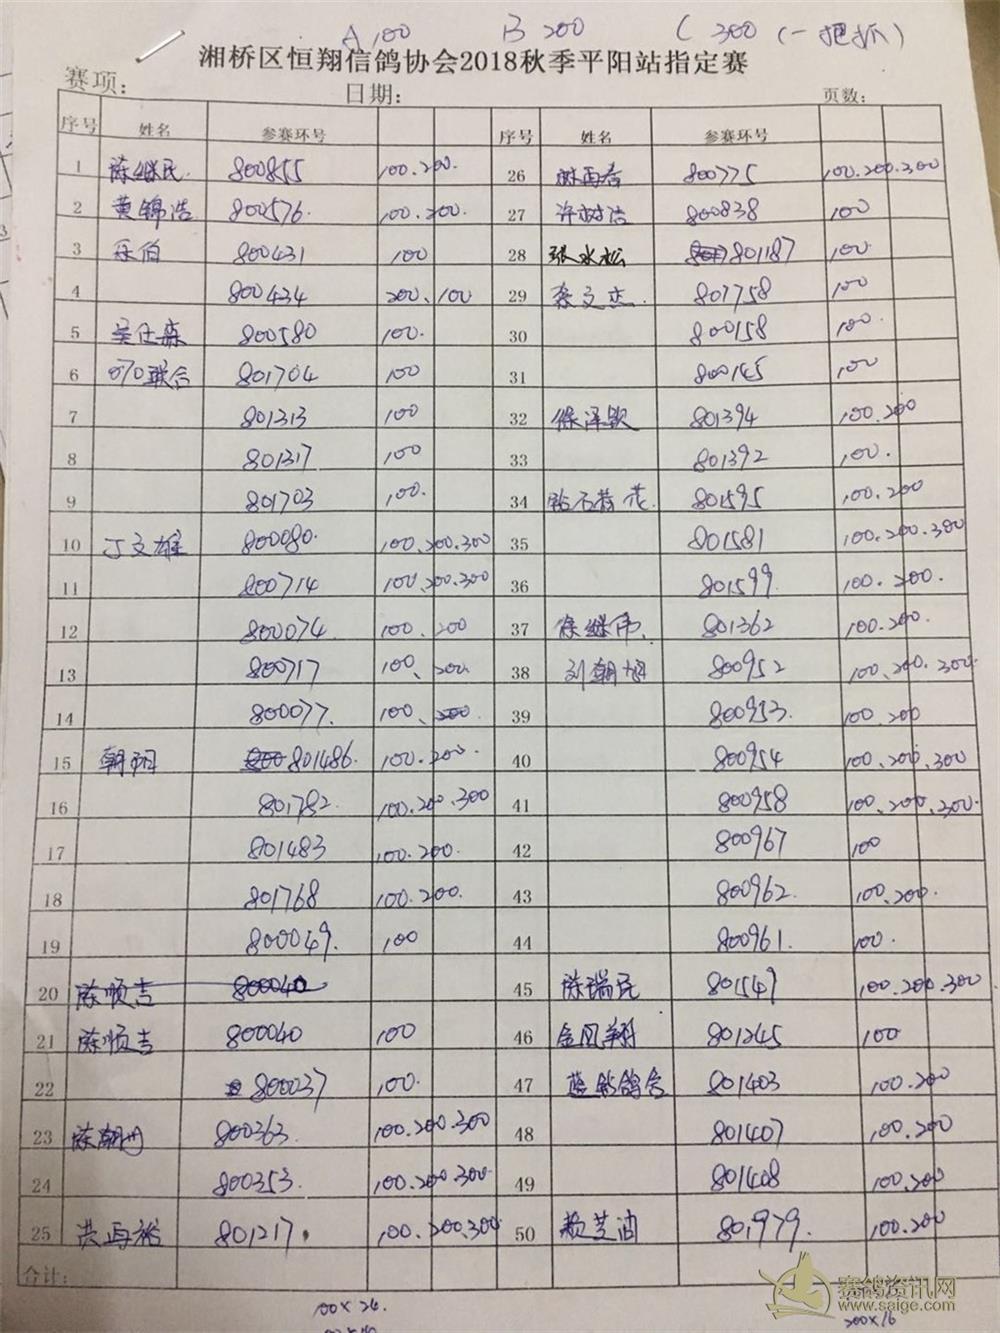 A 100 B 200 C 300 (一把抓)
湘桥区恒翔信鸽协会2018秋季平阳站指定赛
赛项: 日期: 页数:
序号 姓名 参赛环号 序号 姓名 参赛环号
1 陈继民 800855 100.200.
2 黄锦浩 800576. 100.200.
3 乐伯 800431 100
4 800434 200.100
5 吴仕森 800580 100.
6 070联合 801704 100
7 801313 100
8 801317 100
9 801703 100.
10 丁文雄 800080. 100.200.300
11 800714 100.200.300
12 800074 100.200
13 800717 100.200
14 800077. 100.200
15 朝阳 801486. 100.200.
16 801782. 100.200.300
17 801483 100.200.
18 801768 100.200.
19 800049. 100
20 陈顺吉 800040
21 陈顺吉 800040 100
22 800037 100.
23 陈朝州 800363. 100.200.300
24 800353. 100.200.300
25 洪再裕 801217. 100.200.300
合计:
26 800775 100.200.300
27 许树浩 800838 100
28 张水松 801187 100
29 李文杰. 801758 100
30 800158 100.
31 800145 100
32 徐泽钦 801394 100.200
33 801392 100.
34 钻石荷花. 801595 100.200
35 801581 100.200.300
36 801599 100.200.
37 徐继伟. 801362 100.200.
38 刘朝旭 800952 100.200.300
39 800953. 100.200
40 800954 100.200.300
41 800958 100.200.300.
42 800967 100
43 800962. 100.200.
44 800961. 100.
45 陈瑞民 801549 100.200.300
46 金凤翔 801245 100
47 蓝钻鸽舍 801403 100.200
48 801407 100.200
49 801408 100.200
50 赖芝油 801979. 100.200
100×26.
200×16
赛鸽资讯网
www.saige.com